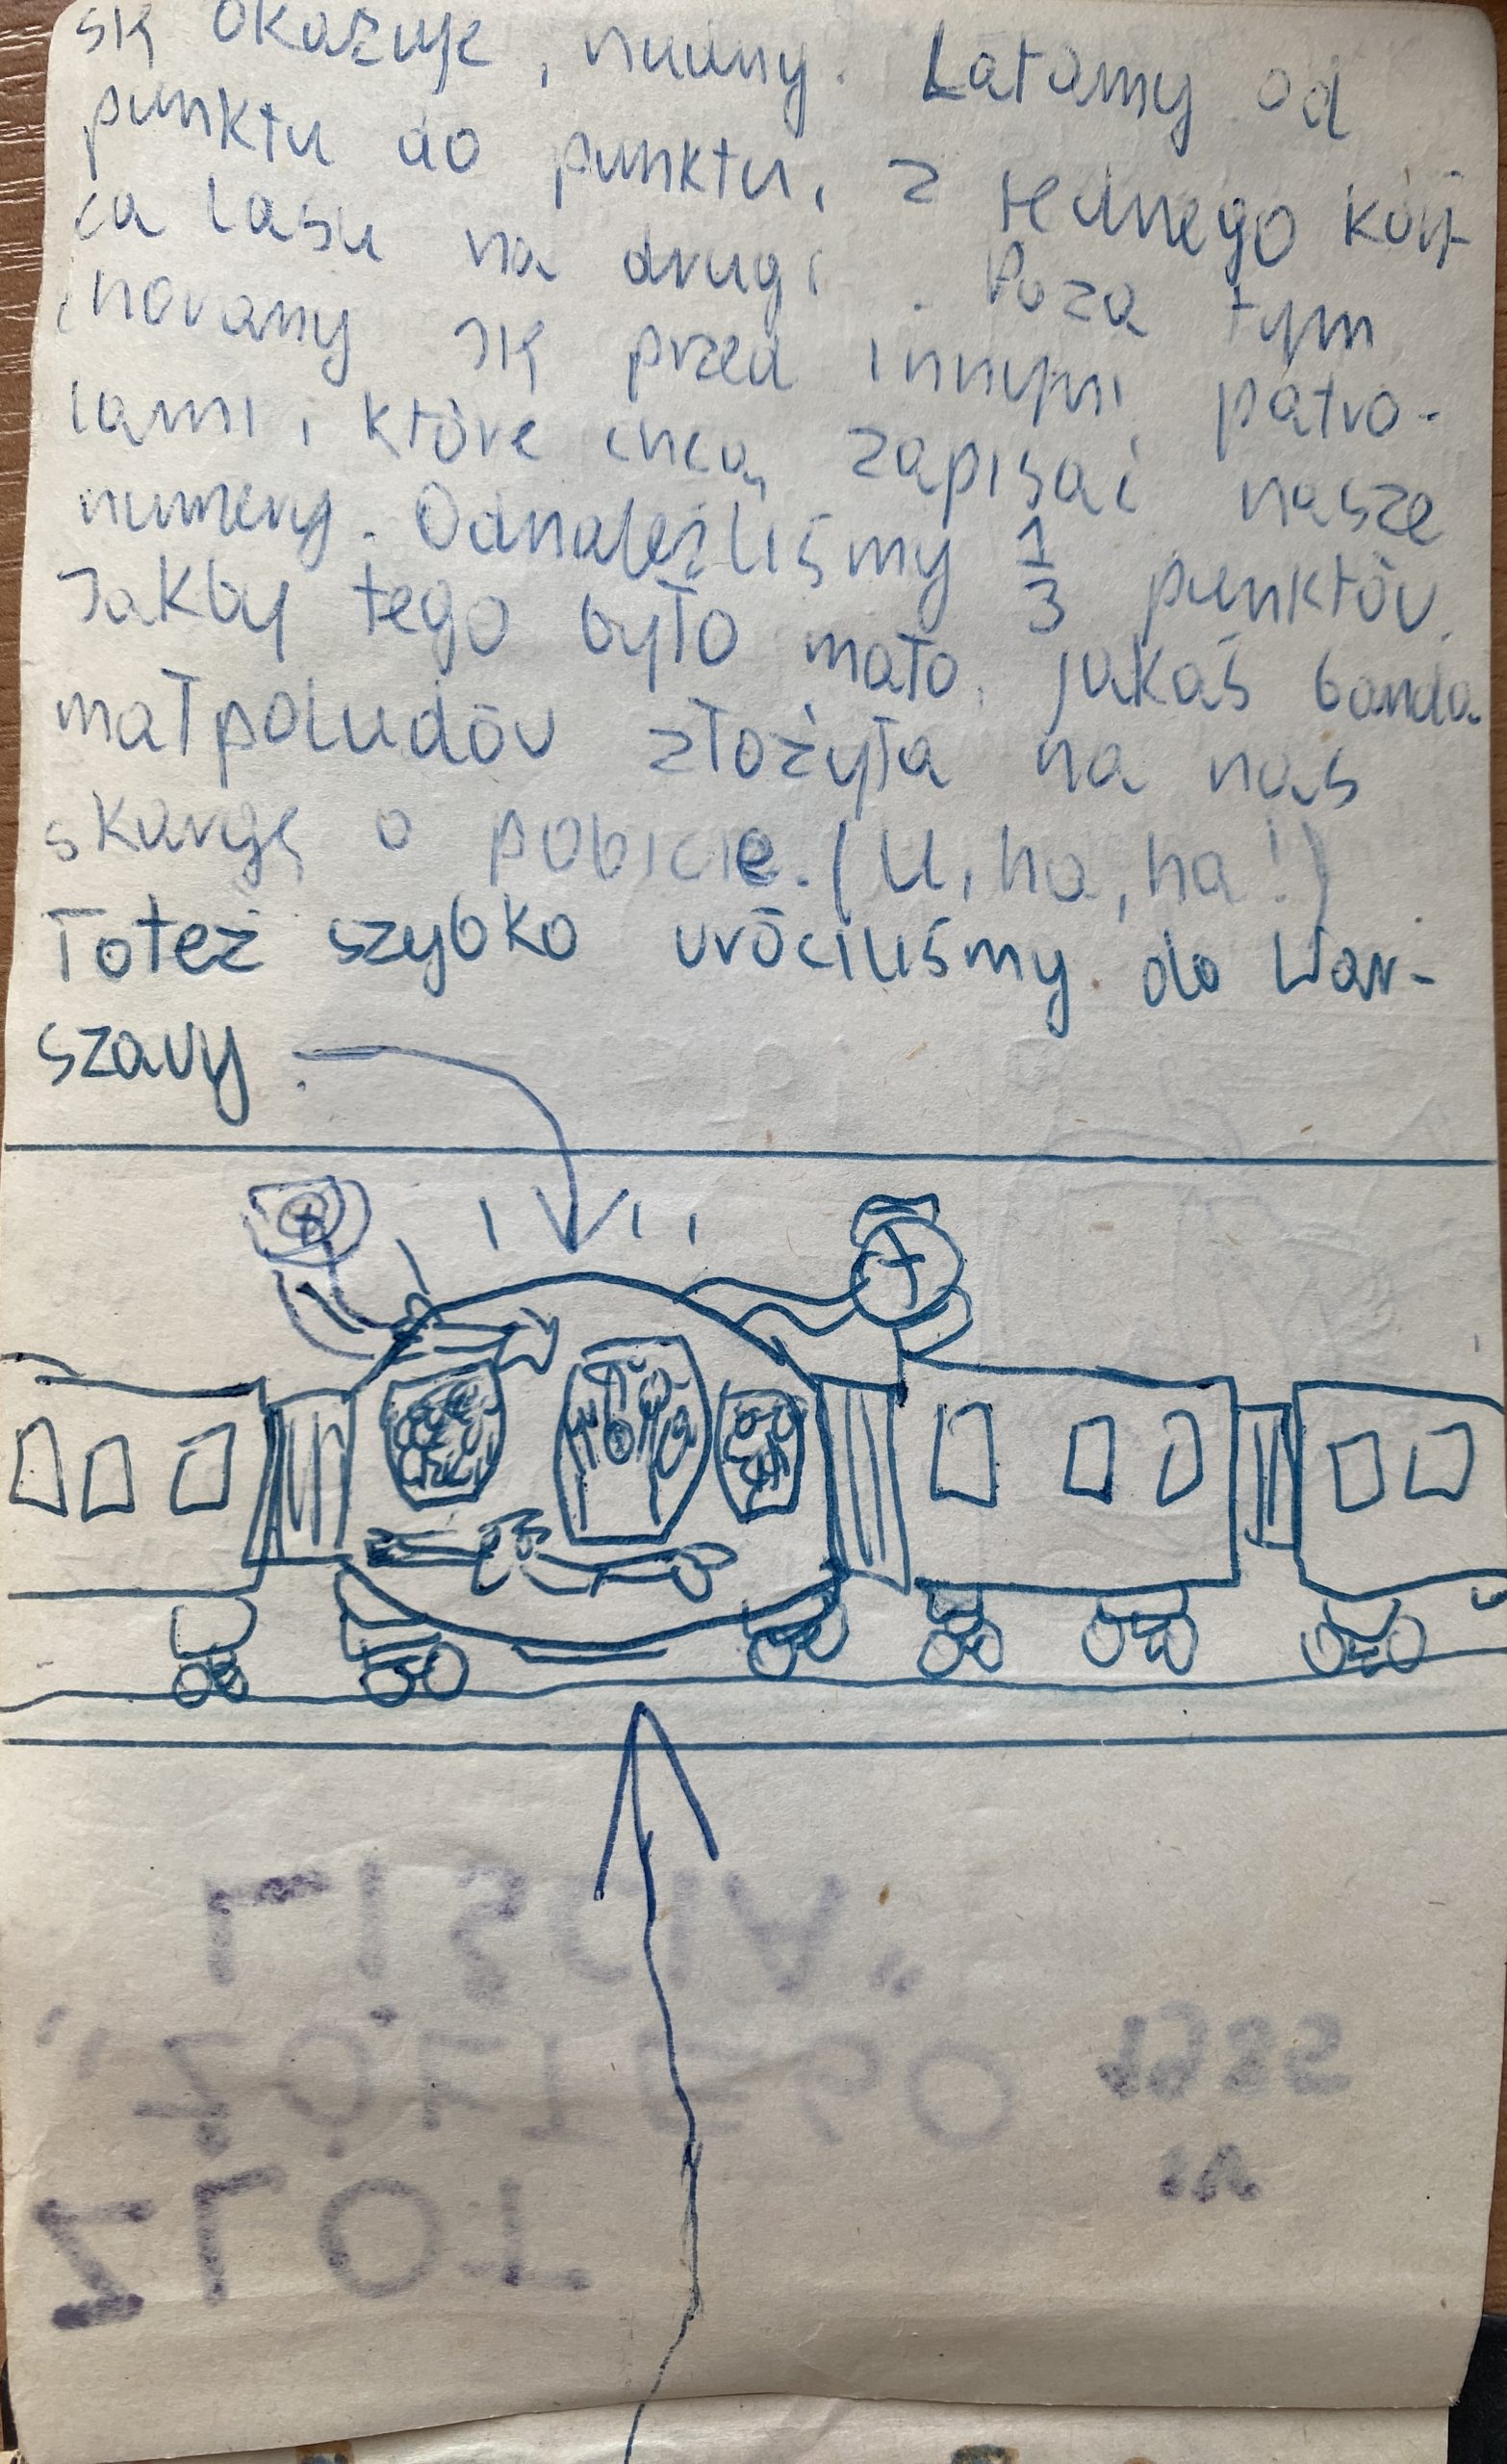 się okazuje, nudny. Latamy od
punktu do punktu, z jednego koń-
ca lasu na drugi. Poza tym
chowamy się przed innymi patro-
lami, które chcą zapisać nasze
numery. Odnaleźliśmy 1/3 punktów.
Jakby tego było mało, jakaś banda
małpoludów złożyła na nas
skargę o pobicie. (U, ha, ha!)
Toteż szybko wróciliśmy do War-
szawy.
LIŚCIA"
"ŻÓŁTEGO
ZLOT